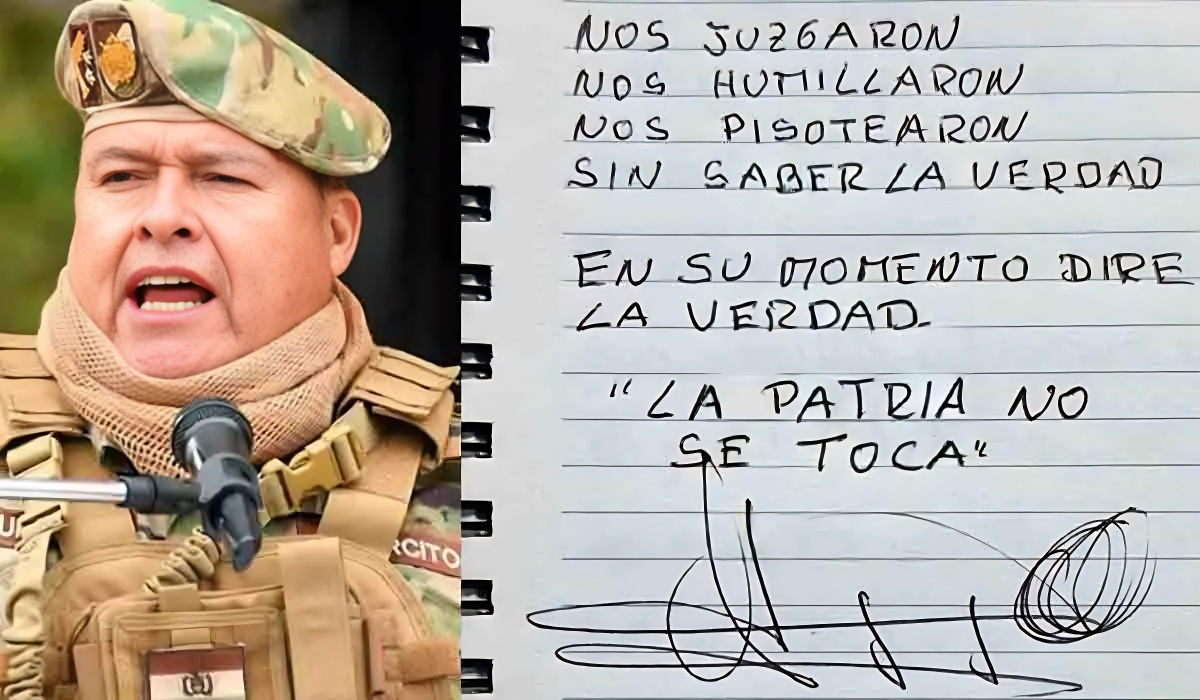 NOS JUZGARON
NOS HUMILLARON
NOS PISOTEARON
SIN SABER LA VERDAD
EN SU MOMENTO DIRE
LA VERDAD.
"LA PATRIA NO
SE TOCA"
RCITO